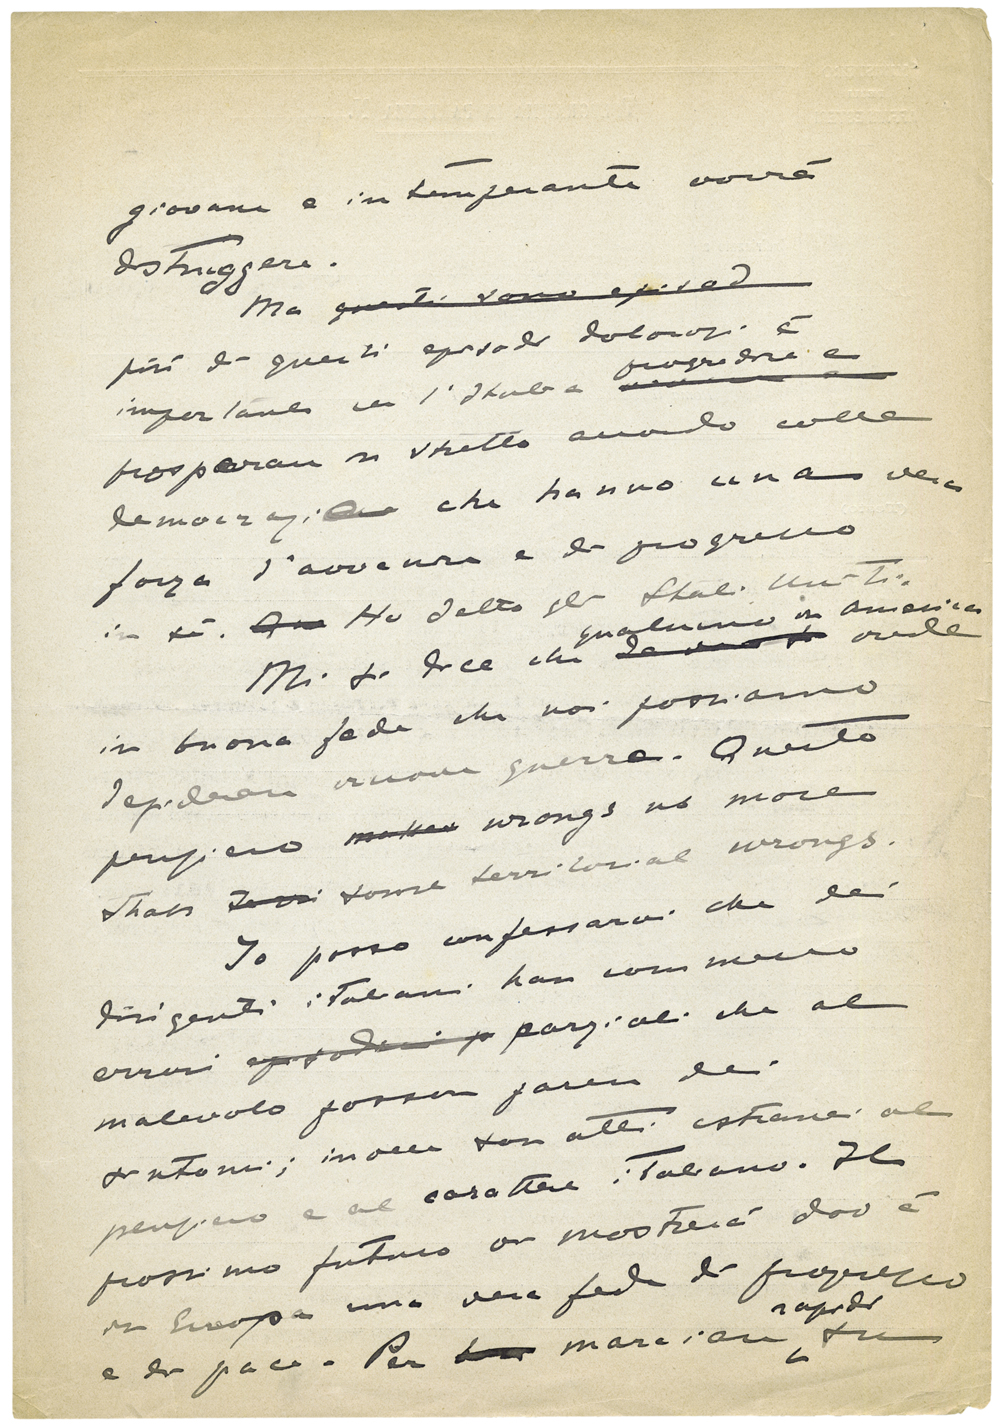 giovane e intemperante vorrà
distruggere.
Ma questi sono episod
più di questi episodi dolorosi è
importante ce l'Italia progredire e
prosperare in stretto accordo colle
democrazie che hanno una vera
forza d'avvenire e di progresso
in sé. Ho detto gli Stati Uniti.
Mi si dice che qualcuno in America crede
in buona fede che noi possiamo
desiderare nuove guerre. Questo
pensiero makes wrongs us more
than some territorial wrongs.
Io posso confessarvi che dei
dirigenti italiani han commesso
errori episodici parziali che al
malevolo posson parere dei
sintomi; invece son atti estranei al
pensiero e al carattere italiano. Il
prossimo futuro vi mostrerà dov è
in Europa una vera fede di progresso
e di pace. Per marciare rapidi su